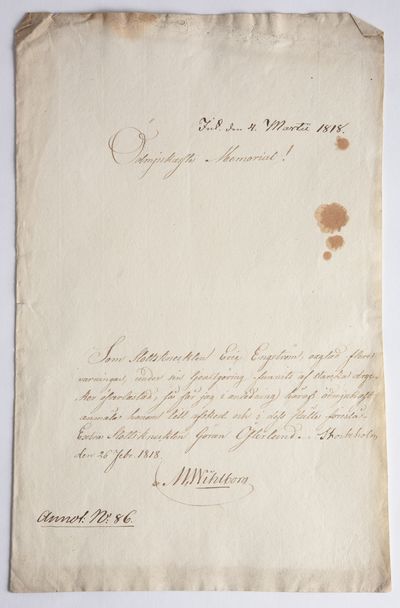 Ink. den 4. Martii 1818.
Ödmjukaste Memorial!
Som Slottsknekten Eric Engström, oagtad flere
varningar, under sin tjenstgöring, funnits af starka dryc-
ker öfverlastad, så får jag i anledning häraf ödmjukast
anmäla honom till afsked och i dess ställe föreslå
Extra Slottsknekten Göran Österlund. Stockholm
den 26 Febr. 1818.
M. Wihlborg
Annot. N:o 86.